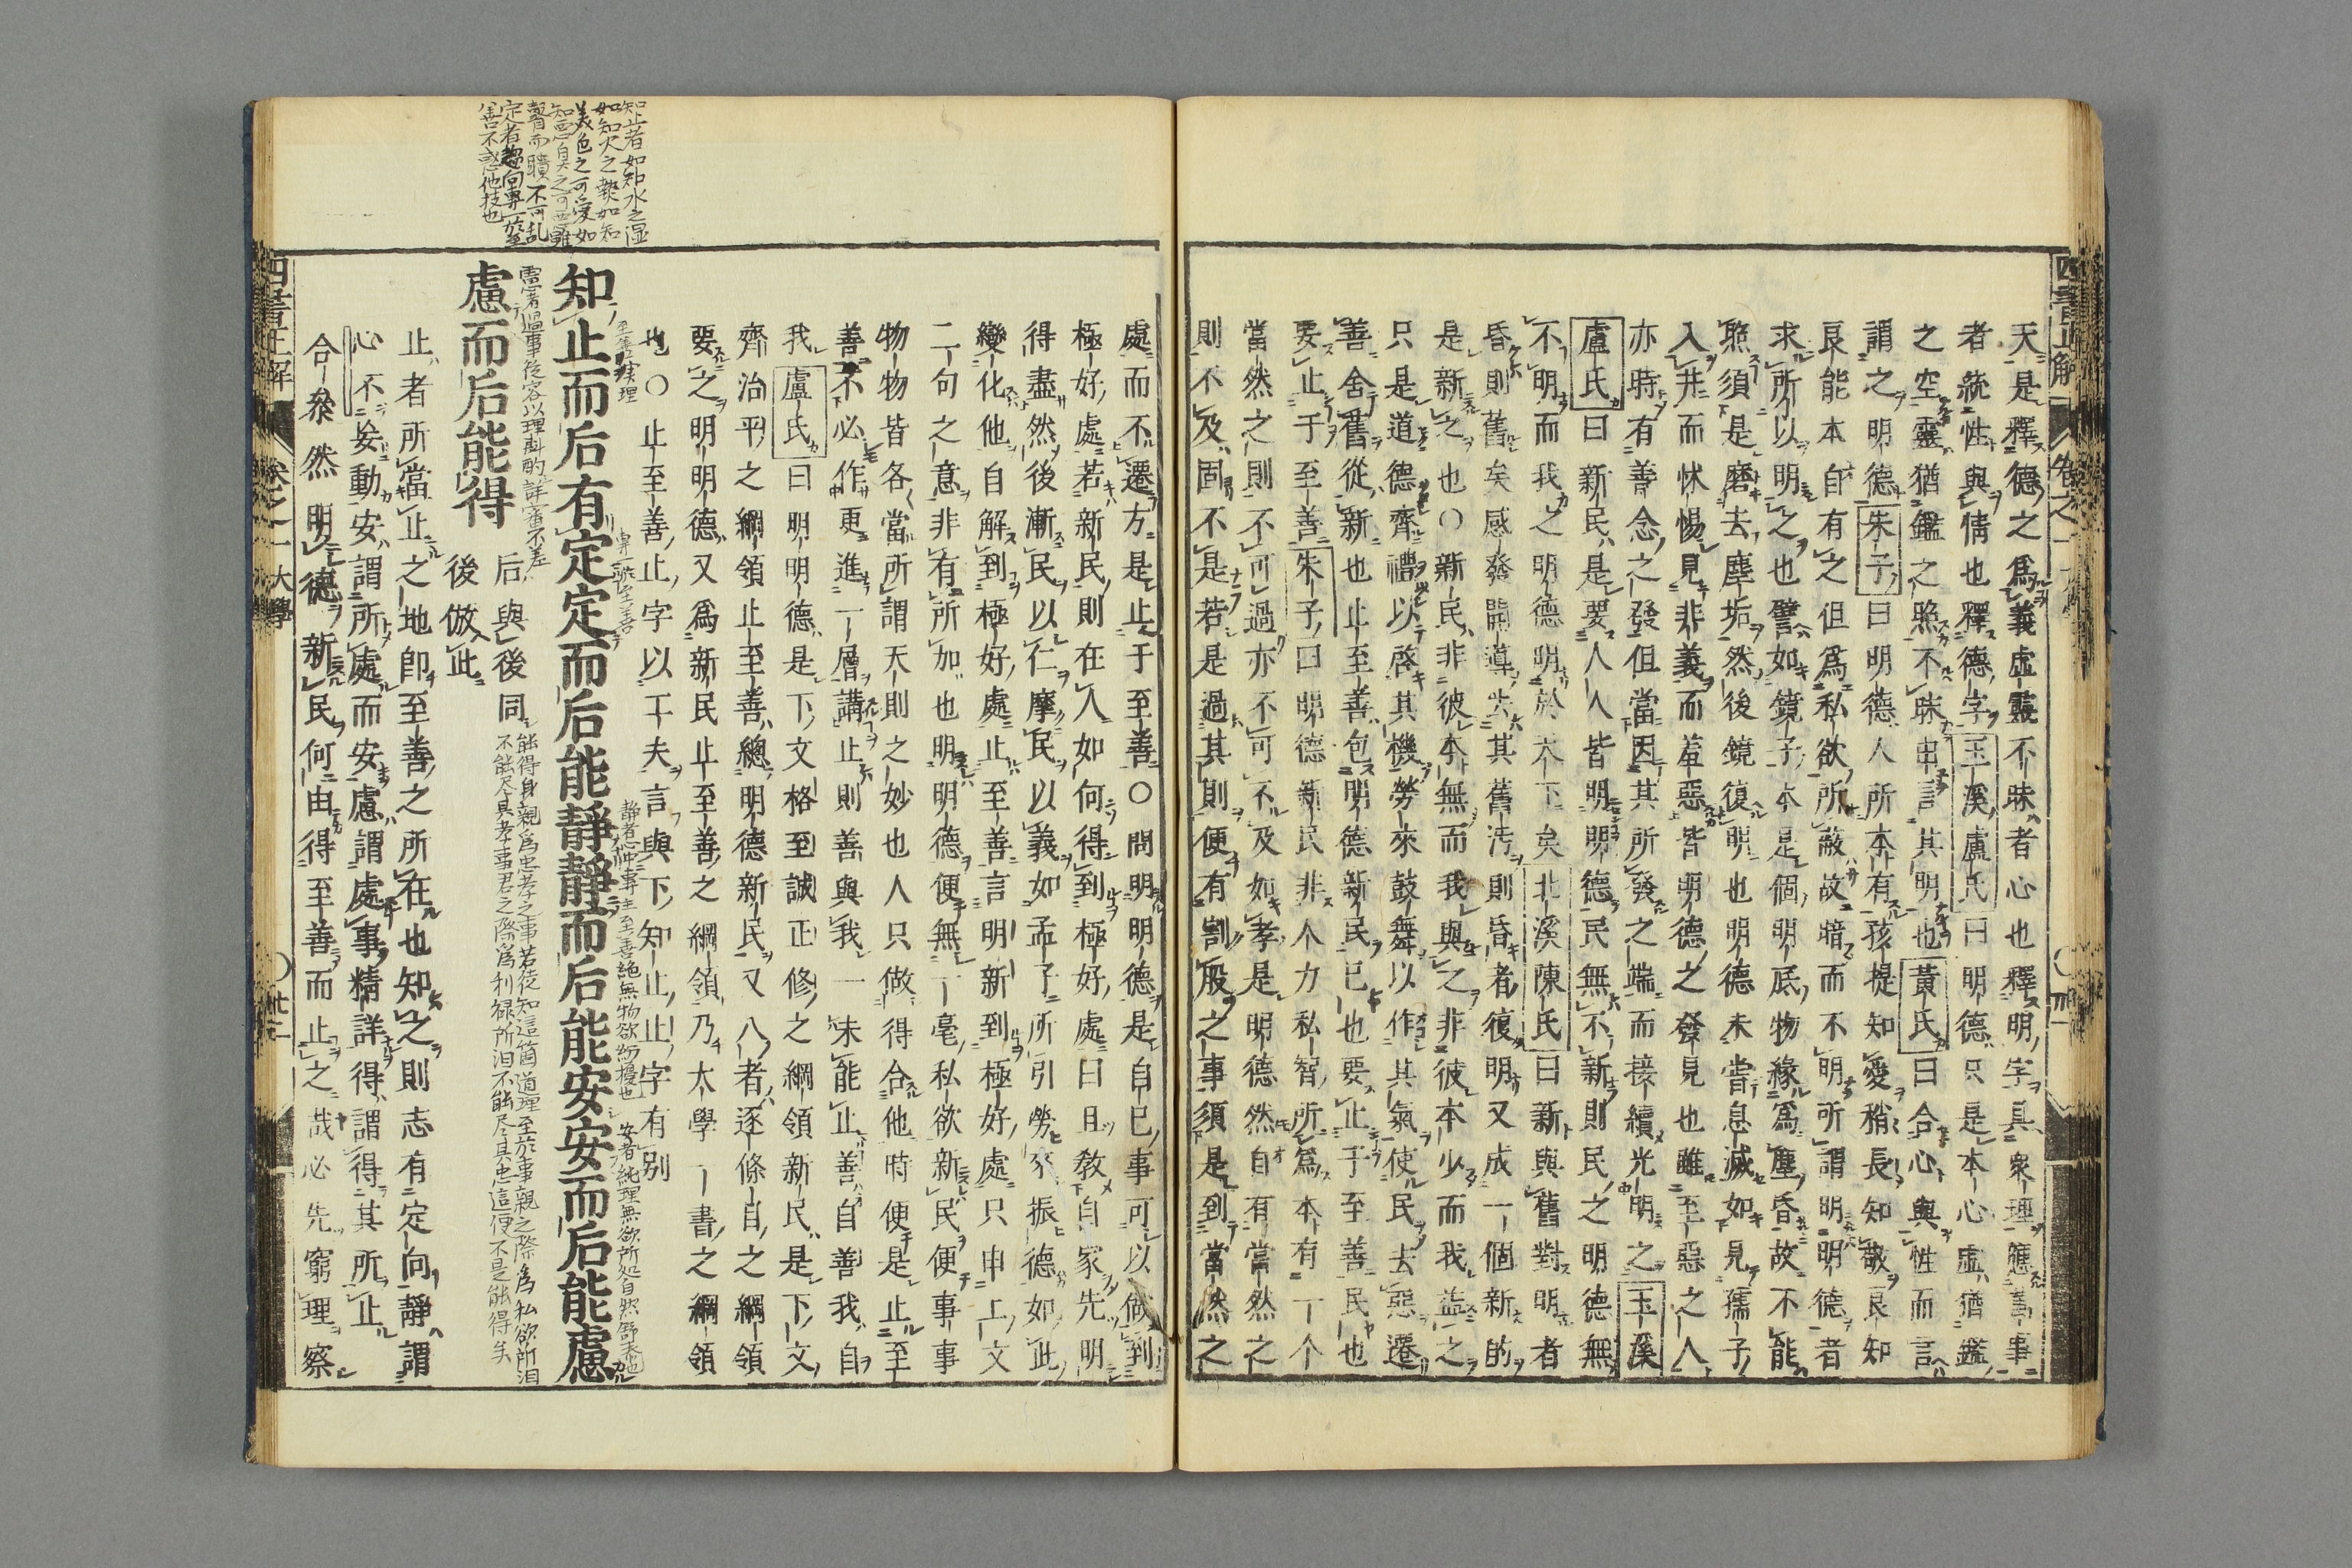 天是釋德之爲義虛靈不昧者心也釋明字具衆理應萬事
者統性與情也釋德字玉溪盧氏曰明德只是本心虛猶鑑
之空靈猶鑑之照不昧申言其明也黃氏曰合心與性而言
謂之明德朱子曰明德人所本有孩提知愛稍長知敬良知
良能本自有之但爲私欲所蔽故暗而不明所謂明明德者
求所以明之也譬如鏡子本是個明底物緣爲塵昏故不能
照須是磨去塵垢然後鏡復明也明德未嘗息滅如見孺子
入井而怵惕見非義而羞惡皆明德之發見也雖至惡之人
亦時有善念之發但當因其所發之端而接續光明之玉溪
盧氏曰新民是要人人皆明明德民無不新則民之明德無
不明而我之明德明於天下矣北溪陳氏曰新與舊對明者
昏則舊矣感發開導去其舊汚則昏者復明又成一個新的
是新之也○新民非彼本無而我與之非彼本少而我益之
只是道德齊禮以啓其機勞來鼓舞以作其氣使民去惡遷
善舍舊從新也止至善包明德新民已也要止于至善民也
要止于至善朱子曰明德新民非人力私智所爲本有一个
當然之則不可過亦不可不及如孝是明德然自有當然之
則不及固不是若是過其則便有割股之事須是到當然之
四書正解 卷之一
處而不遷方是止于至善○問明明德是自己事可以做到
極好處若新民則在人如何得到極好處曰且教自家先明
得盡然後漸民以仁摩民以義如孟子所引勞來振德如此
變化他自解到極好處止至善言明新到極好處只申上文
二句之意非有所加也明明德便無一毫私欲新民便事事
物物皆各當所謂天則之妙也人只做得合他時便是止至
善不必作更進一層講止則善與我一未能止善自善我自
我盧氏曰明明德是下文格至誠正修之綱領新民是下文
齊治平之綱領止至善總明德新民又八者逐條自之綱領
要之明明德又爲新民止至善之綱領乃大學一書之綱領
也○止至善止字以工夫言與下知止止字有別
知止而后有定定而后能靜靜而后能安安而后能慮
慮而后能得 后與後同
後倣此
止者所當止之地卽至善之所在也知之則志有定向靜謂
心不妄動安謂所處而安慮謂處事精詳得謂得其所止
合參然明德新民何由得至善而止之哉必先窮理察
四書正解 卷之一 大學
知止者如知水之湿
如知火之熱如知
美色之可愛如
知悪臭之可悪雖
不可乱
定者趣向專一於至
善不惑他技也
慮者過事從容以理斟酌詳審不差
專一於至善
靜者心中專主至善絶無物欲紛擾也
安者純理無欲所処自然舒泰也
能得身親爲忠孝之事若徒知這箇道理至於事親之際爲私欲所汩
不能尽其孝事君之際爲利禄所汩不能尽其忠這便不是能得矣